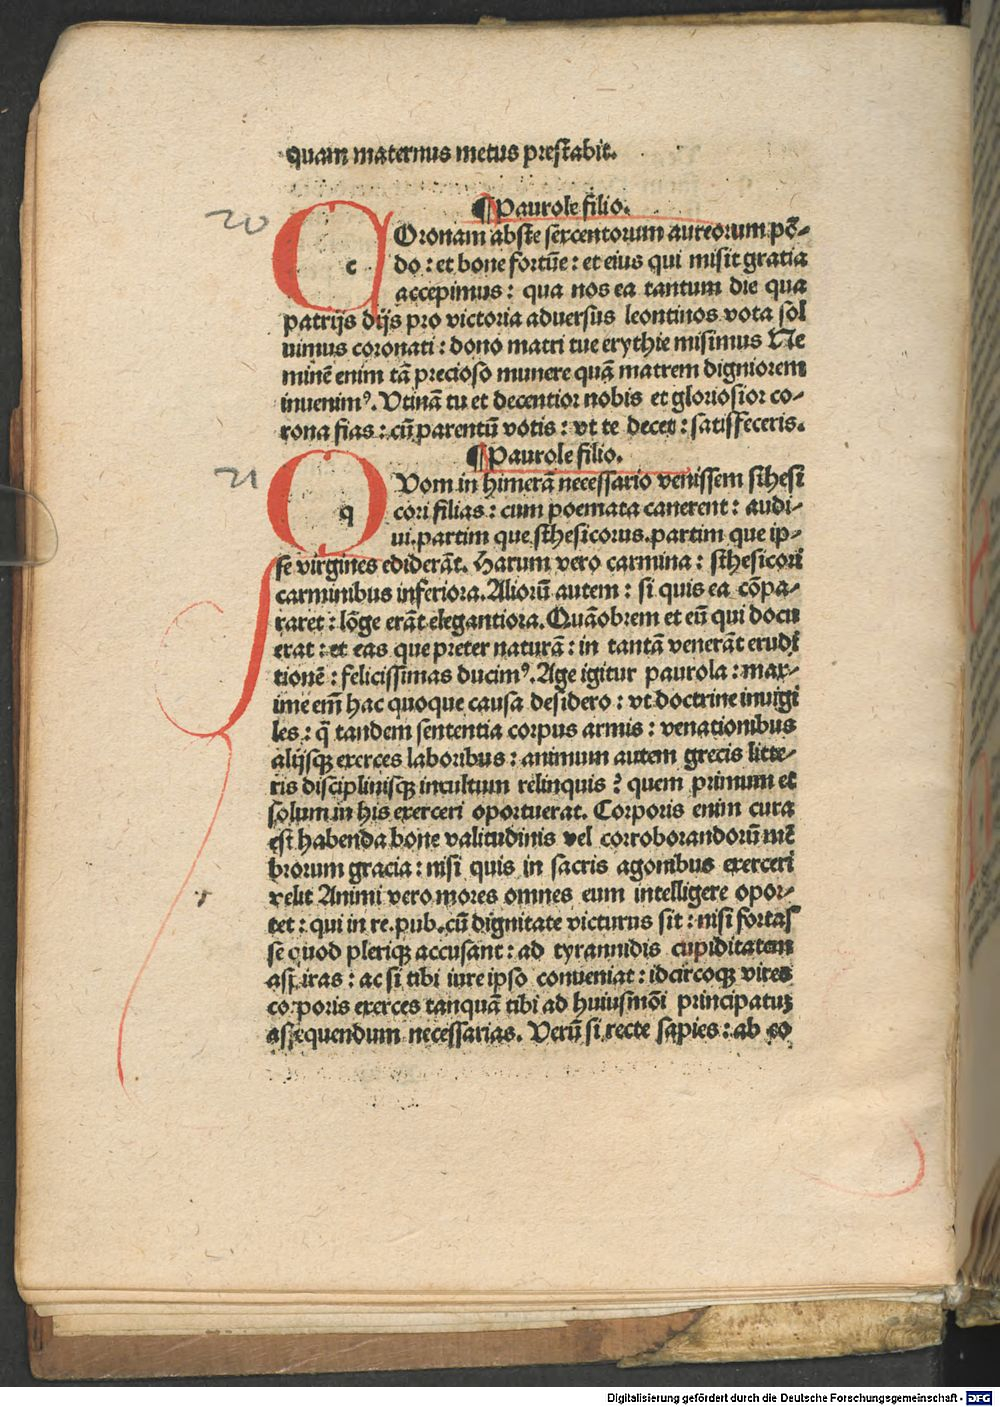 quam maternus metus prestabit.
¶Paurole filio.
20
COronam abste sexcentorum aureorum põ-
c
do : et bone fortũe : et eius qui misit gratia
accepimus : qua nos ea tantum die qua
patrijs dijs pro victoria adversus leontinos vota sol
uimus coronati : dono matri tue erythie misimus Ne
minẽ enim tã precioso munere quã matrem digniorem
inuenimꝰ. Utinã tu et decentior nobis et gloriosior co-
rona fias : cũ parentũ votis : vt te decet : satisfeceris.
¶Paurole filio.
21
QUom in himerã necessario venissem sthesi
q
cori filias : cum poemata canerent : audi-
ui.partim que sthesicorus.partim que ip-
se virgines ediderãt. Harum vero carmina : sthesicori
carminibus inferiora. Aliorũ autem : si quis ea cõpa-
raret : lõge erãt elegantiora. Quãobrem et eũ qui docu
erat : et eas que preter naturã : in tantã venerãt erudi
tionẽ : felicissimas ducimꝰ. Age igitur paurola : max-
ime em̃ hac quoque causa desidero : vt doctrine inuigi
les : q̃ tandem sententia corpus armis : venationibus
alijsqꝫ exerces laboribus : animum autem grecis litte-
ris disciplinisqꝫ incultum relinquis ? quem primum et
solum in his exerceri oportuerat. Corporis enim cura
est habenda bone valitudinis vel corroborandorũ mẽ
brorum gracia : nisi quis in sacris agonibus exerceri
velit Animi vero mores omnes eum intelligere opor-
tet : qui in re.pub.cũ dignitate victurus sit : nisi fortas
se quod plerique accusant : ad tyrannidis cupiditatem
aspiras : ac si tibi iure ipso conveniat : idcircoqꝫ vires
corporis exerces tanquã tibi ad huiusmõi principatus
assequendum necessarias. Verũ si recte sapies : ab eo
Digitalisierung gefördert durch die Deutsche Forschungsgemeinschaft - DFG